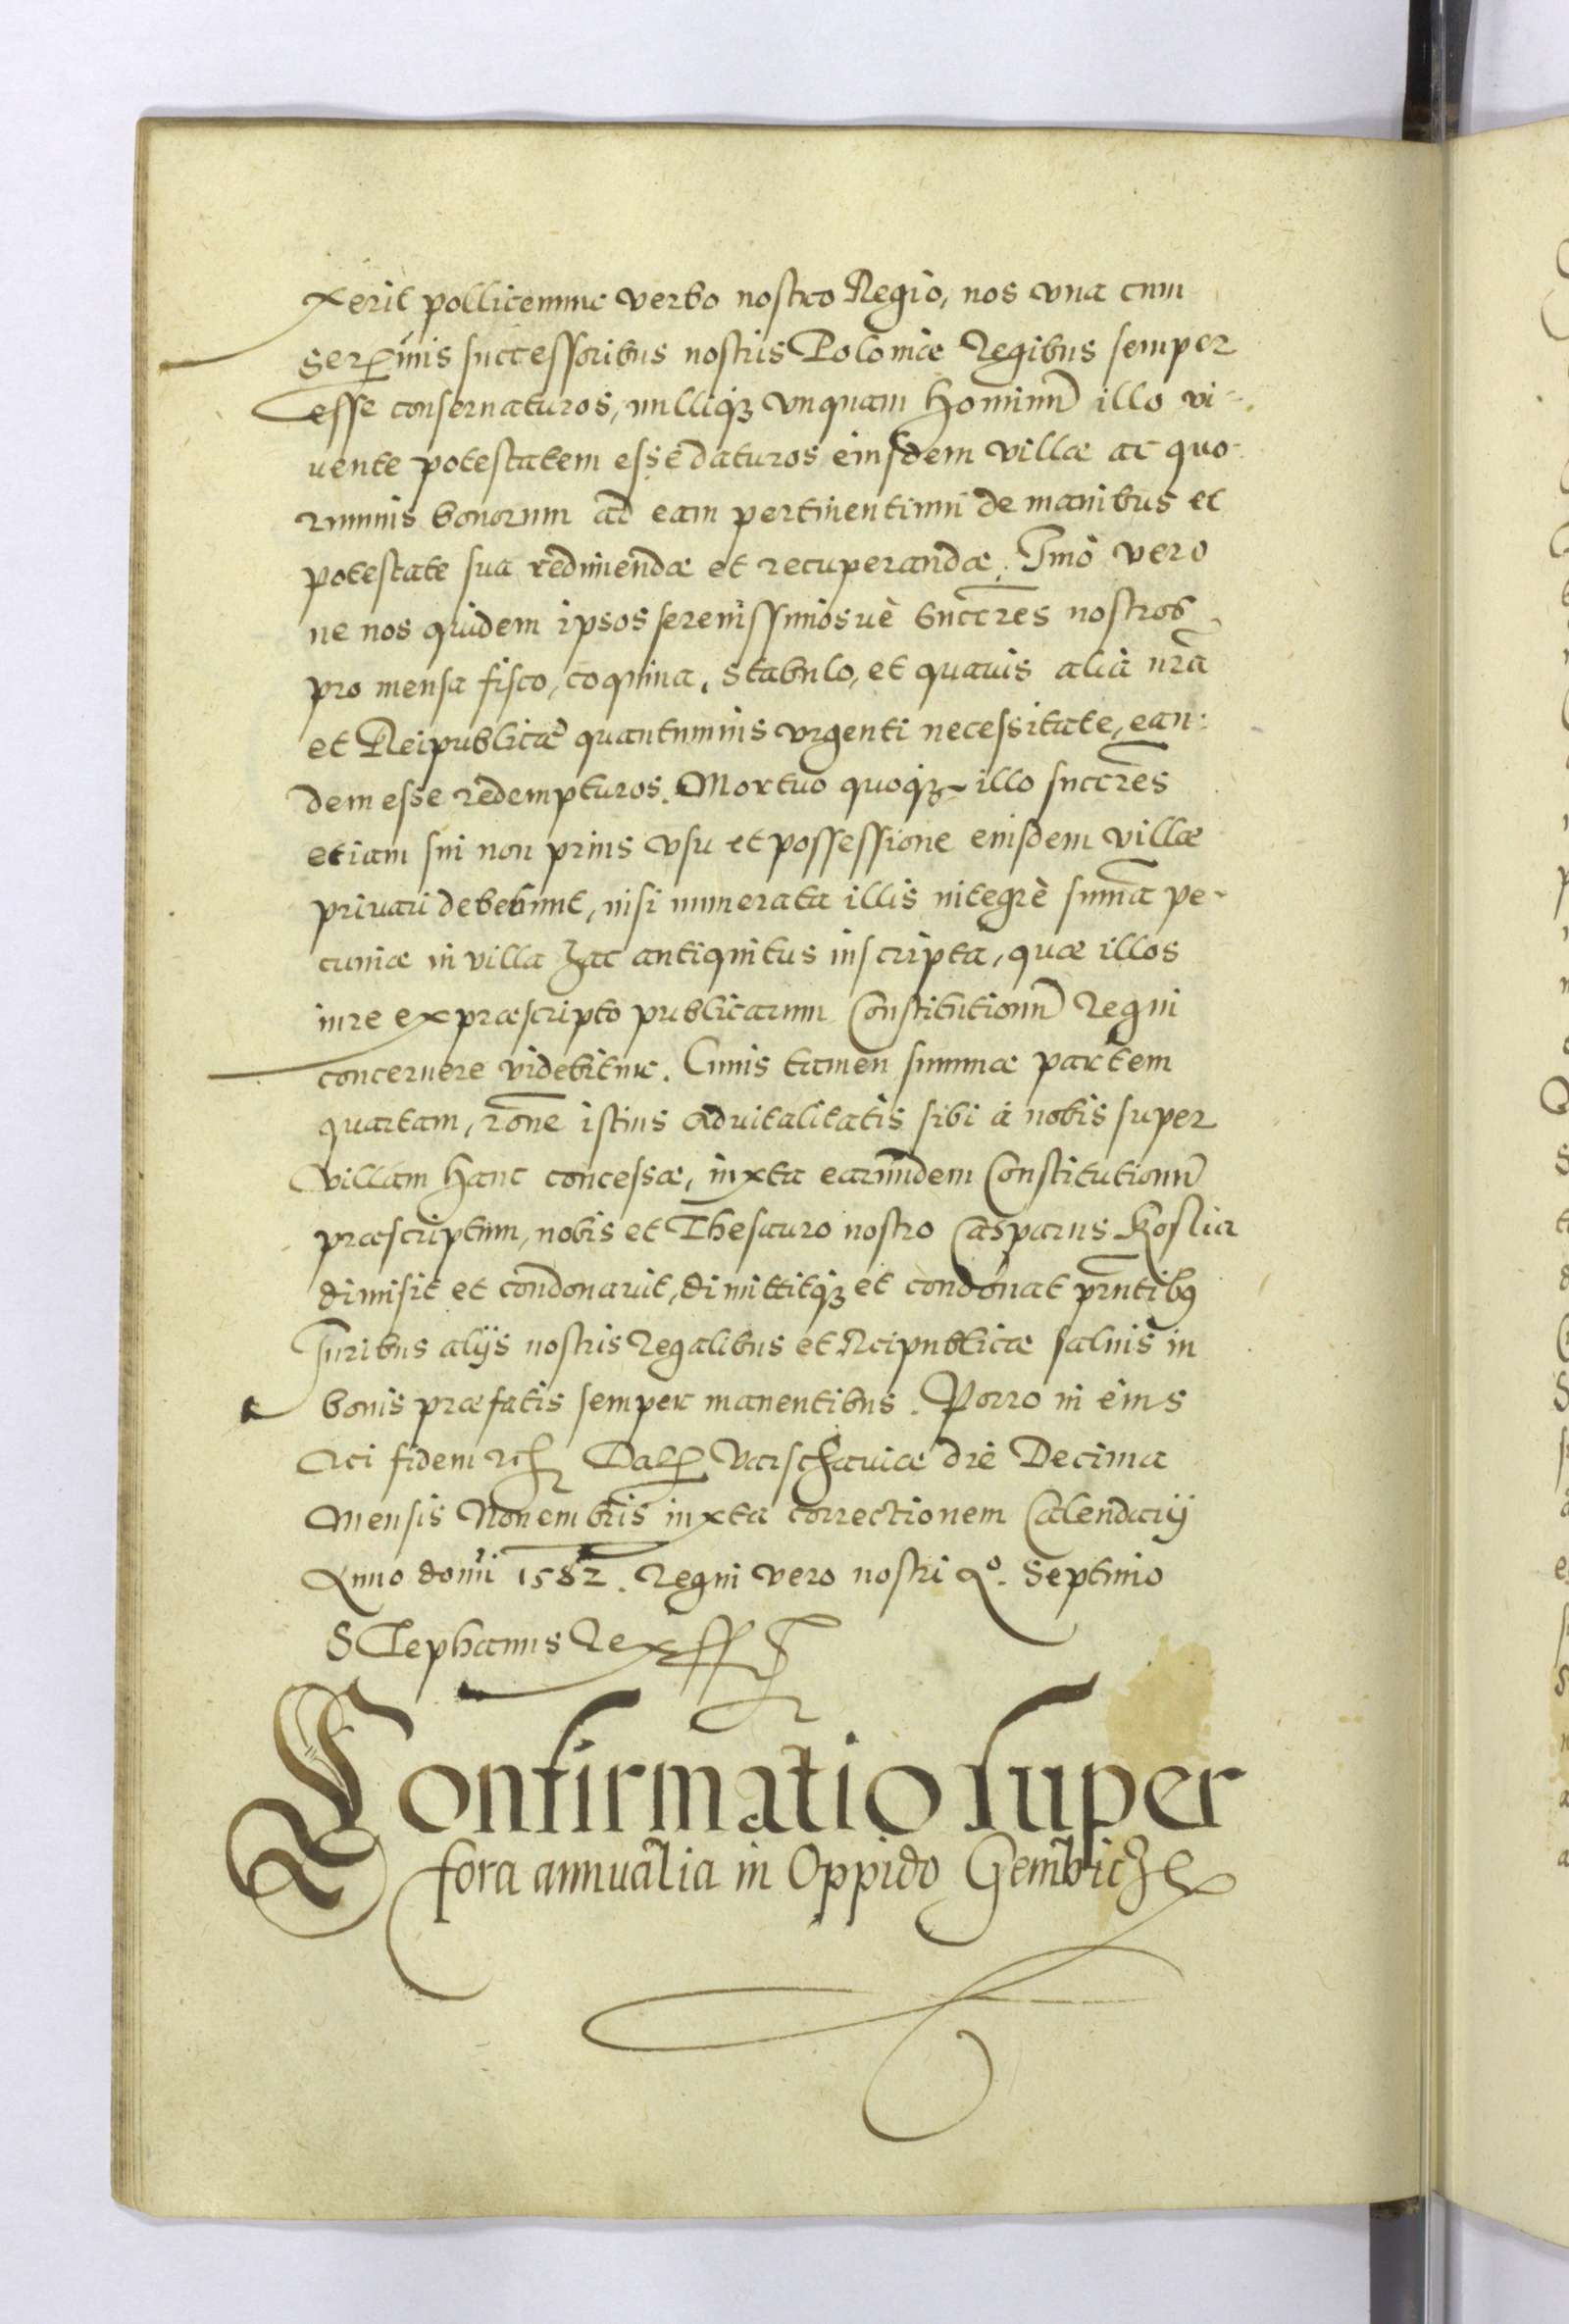 xerit pollicemur verbo nostro Regio, nos vna cum
Serꝑmis successoribus nostris Poloniæ Regibus semper
esse conseruaturos, nulliqꝫ vnquam hominũ illo vi-
uente potestatem esse daturos eiusdem villæ ac quo-
rumuis bonorum ad eam pertinentium de manibus et
potestate sua redimendæ et recuperandæ. Imò vero
ne nos quidem ipsos serenissimosuè succres nostros
pro mensa fisco, coquina, stabulo, et quauis alia nr̃a
et Reipublicæ quantumuis vrgenti necessitate, ean:
dem esse redempturos. Mortuo quoqꝫ illo succres
etiam sui non prius vsu et possessione eiusdem villæ
priuari debebunt, nisi numerata illis integrè summa pe-
cuniæ in villa hac antiquitus inscripta, quæ illos
iure ex præscripto publicarum Constitutionũ Regni
concernere videbitur. Cuius tamen summæ partem
quartam, rone istius aduitalitatis sibi à nobis super
villam hanc concessæ, iuxta earumdem Constitutionũ
præscriptum, nobis et Thesauro nostro Casparus Koslia
dimisit et condonauit, dimittitqꝫ et condonat prntibꝯ
Iuribus alijs nostris Regalibus et Reipublicæ saluis in
bonis præfatis semper manentibus. Porro in eius
rei fidem Daꝑ Varschauiæ die Decima
Mensis Nouembris iuxta correctionem Calendarij
Anno domi 1582. Regni vero nostri Ao. Septimo
Stephanus Rex sst
Confirmatio super
fora annualia in Oppido Gembicze